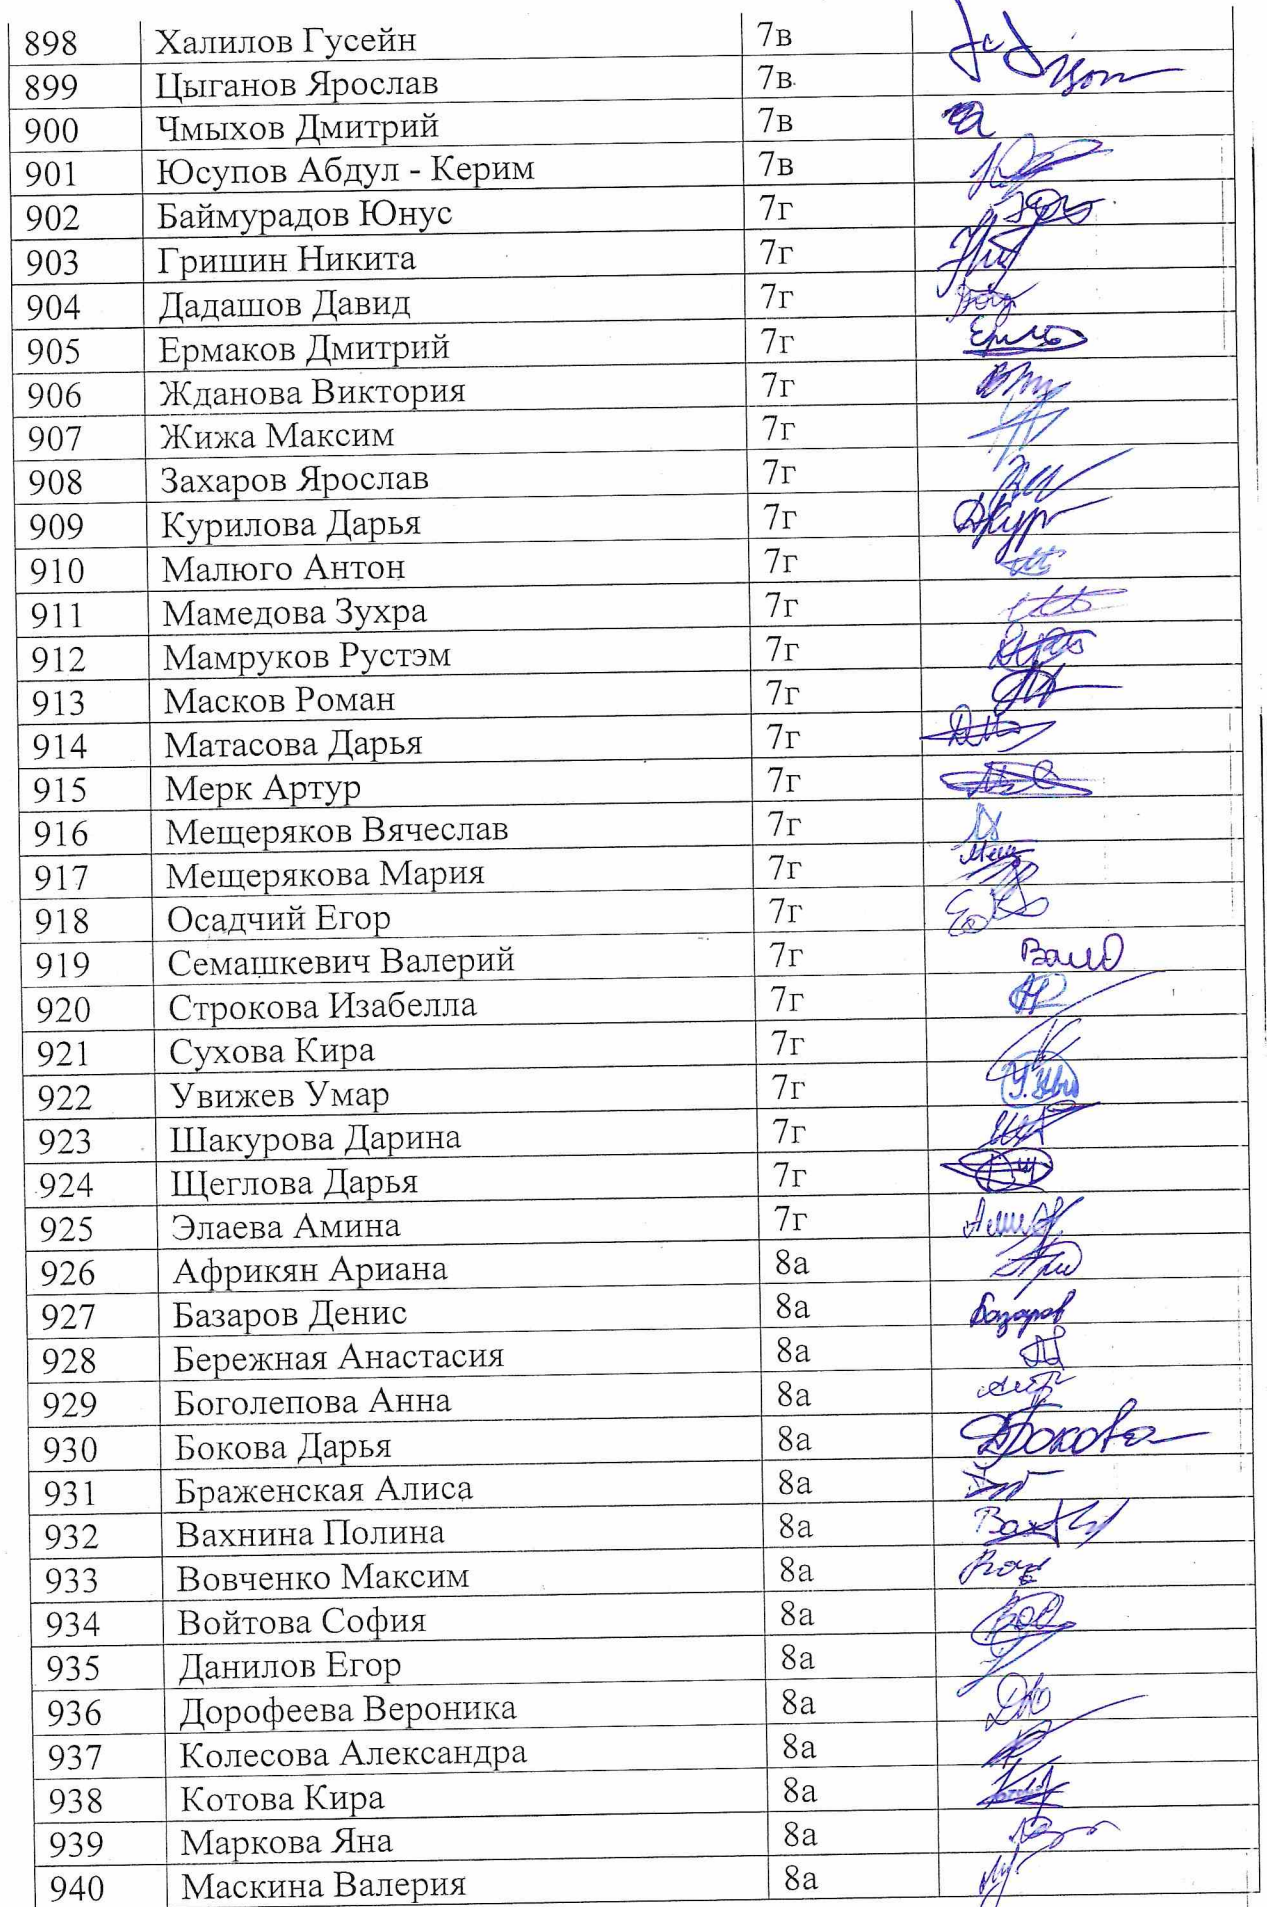 898 Халилов Гусейн 7в
899 Цыганов Ярослав 7в
900 Чмыхов Дмитрий 7в
901 Юсупов Абдул - Керим 7в
902 Баймурадов Юнус 7г
903 Гришин Никита 7г
904 Дадашов Давид 7г
905 Ермаков Дмитрий 7г
906 Жданова Виктория 7г
907 Жижа Максим 7г
908 Захаров Ярослав 7г
909 Курилова Дарья 7г
910 Малюго Антон 7г
911 Мамедова Зухра 7г
912 Мамруков Рустэм 7г
913 Масков Роман 7г
914 Матасова Дарья 7г
915 Мерк Артур 7г
916 Мещеряков Вячеслав 7г
917 Мещерякова Мария 7г
918 Осадчий Егор 7г
919 Семашкевич Валерий 7г
920 Строкова Изабелла 7г
921 Сухова Кира 7г
922 Увижев Умар 7г
923 Шакурова Дарина 7г
924 Щеглова Дарья 7г
925 Элаева Амина 7г
926 Африкян Ариана 8а
927 Базаров Денис 8а Базаров
928 Бережная Анастасия 8а
929 Боголепова Анна 8а
930 Бокова Дарья 8а
931 Браженская Алиса 8а
932 Вахнина Полина 8а
933 Вовченко Максим 8а
934 Войтова София 8а
935 Данилов Егор 8а
936 Дорофеева Вероника 8а
937 Колесова Александра 8а
938 Котова Кира 8а
939 Маркова Яна 8а
940 Маскина Валерия 8а